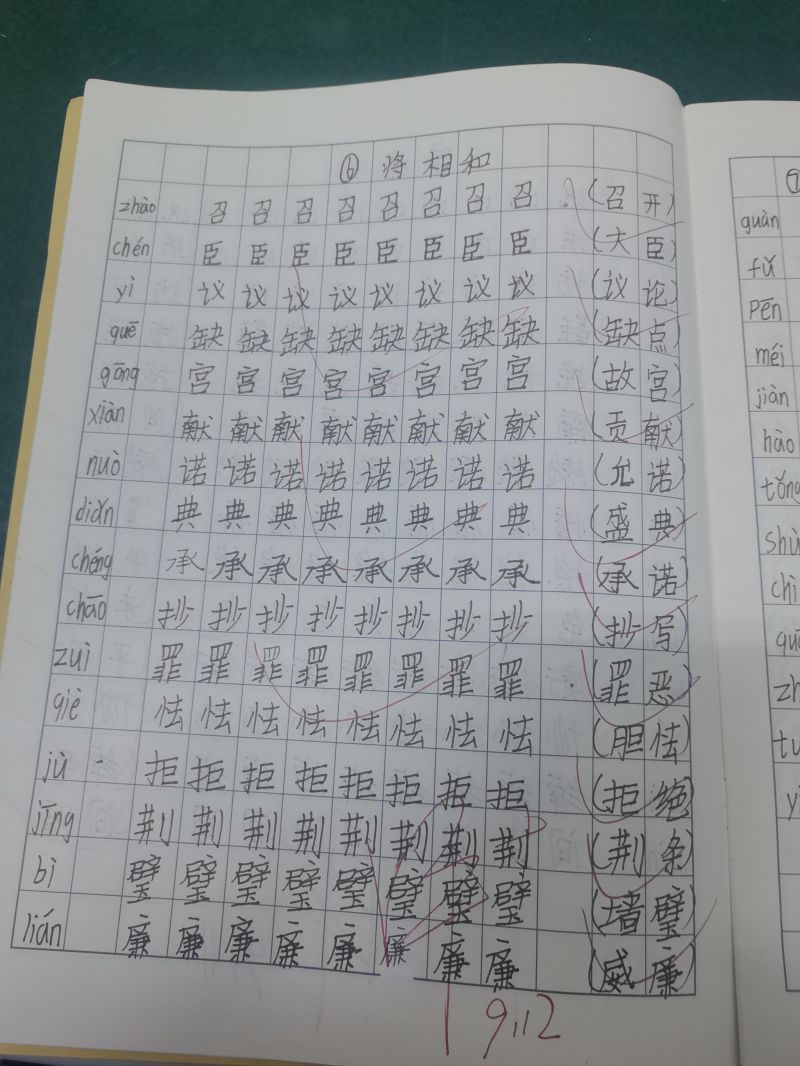 ⑥ 将相和
zhào 召 召 召 召 召 召 召 召 (召开)
chén 臣 臣 臣 臣 臣 臣 臣 臣 (大臣)
yì 议 议 议 议 议 议 议 议 (议论)
quē 缺 缺 缺 缺 缺 缺 缺 缺 (缺点)
gōng 宫 宫 宫 宫 宫 宫 宫 宫 (故宫)
xiàn 献 献 献 献 献 献 献 献 (贡献)
nuò 诺 诺 诺 诺 诺 诺 诺 诺 (允诺)
diǎn 典 典 典 典 典 典 典 典 (盛典)
chéng 承 承 承 承 承 承 承 承 (承诺)
chāo 抄 抄 抄 抄 抄 抄 抄 抄 (抄写)
zuì 罪 罪 罪 罪 罪 罪 罪 罪 (罪恶)
qiè 怯 怯 怯 怯 怯 怯 怯 怯 (胆怯)
jù 拒 拒 拒 拒 拒 拒 拒 拒 (拒绝)
jīng 荆 荆 荆 荆 荆 荆 荆 荆 (荆条)
bì 璧 璧 璧 璧 璧 璧 璧 璧 (墙璧)
lián 廉 廉 廉 廉 廉 廉 廉 廉 (威廉)
9,12
⑦
guàn
fǔ
Pēn
méi
jiàn
hào